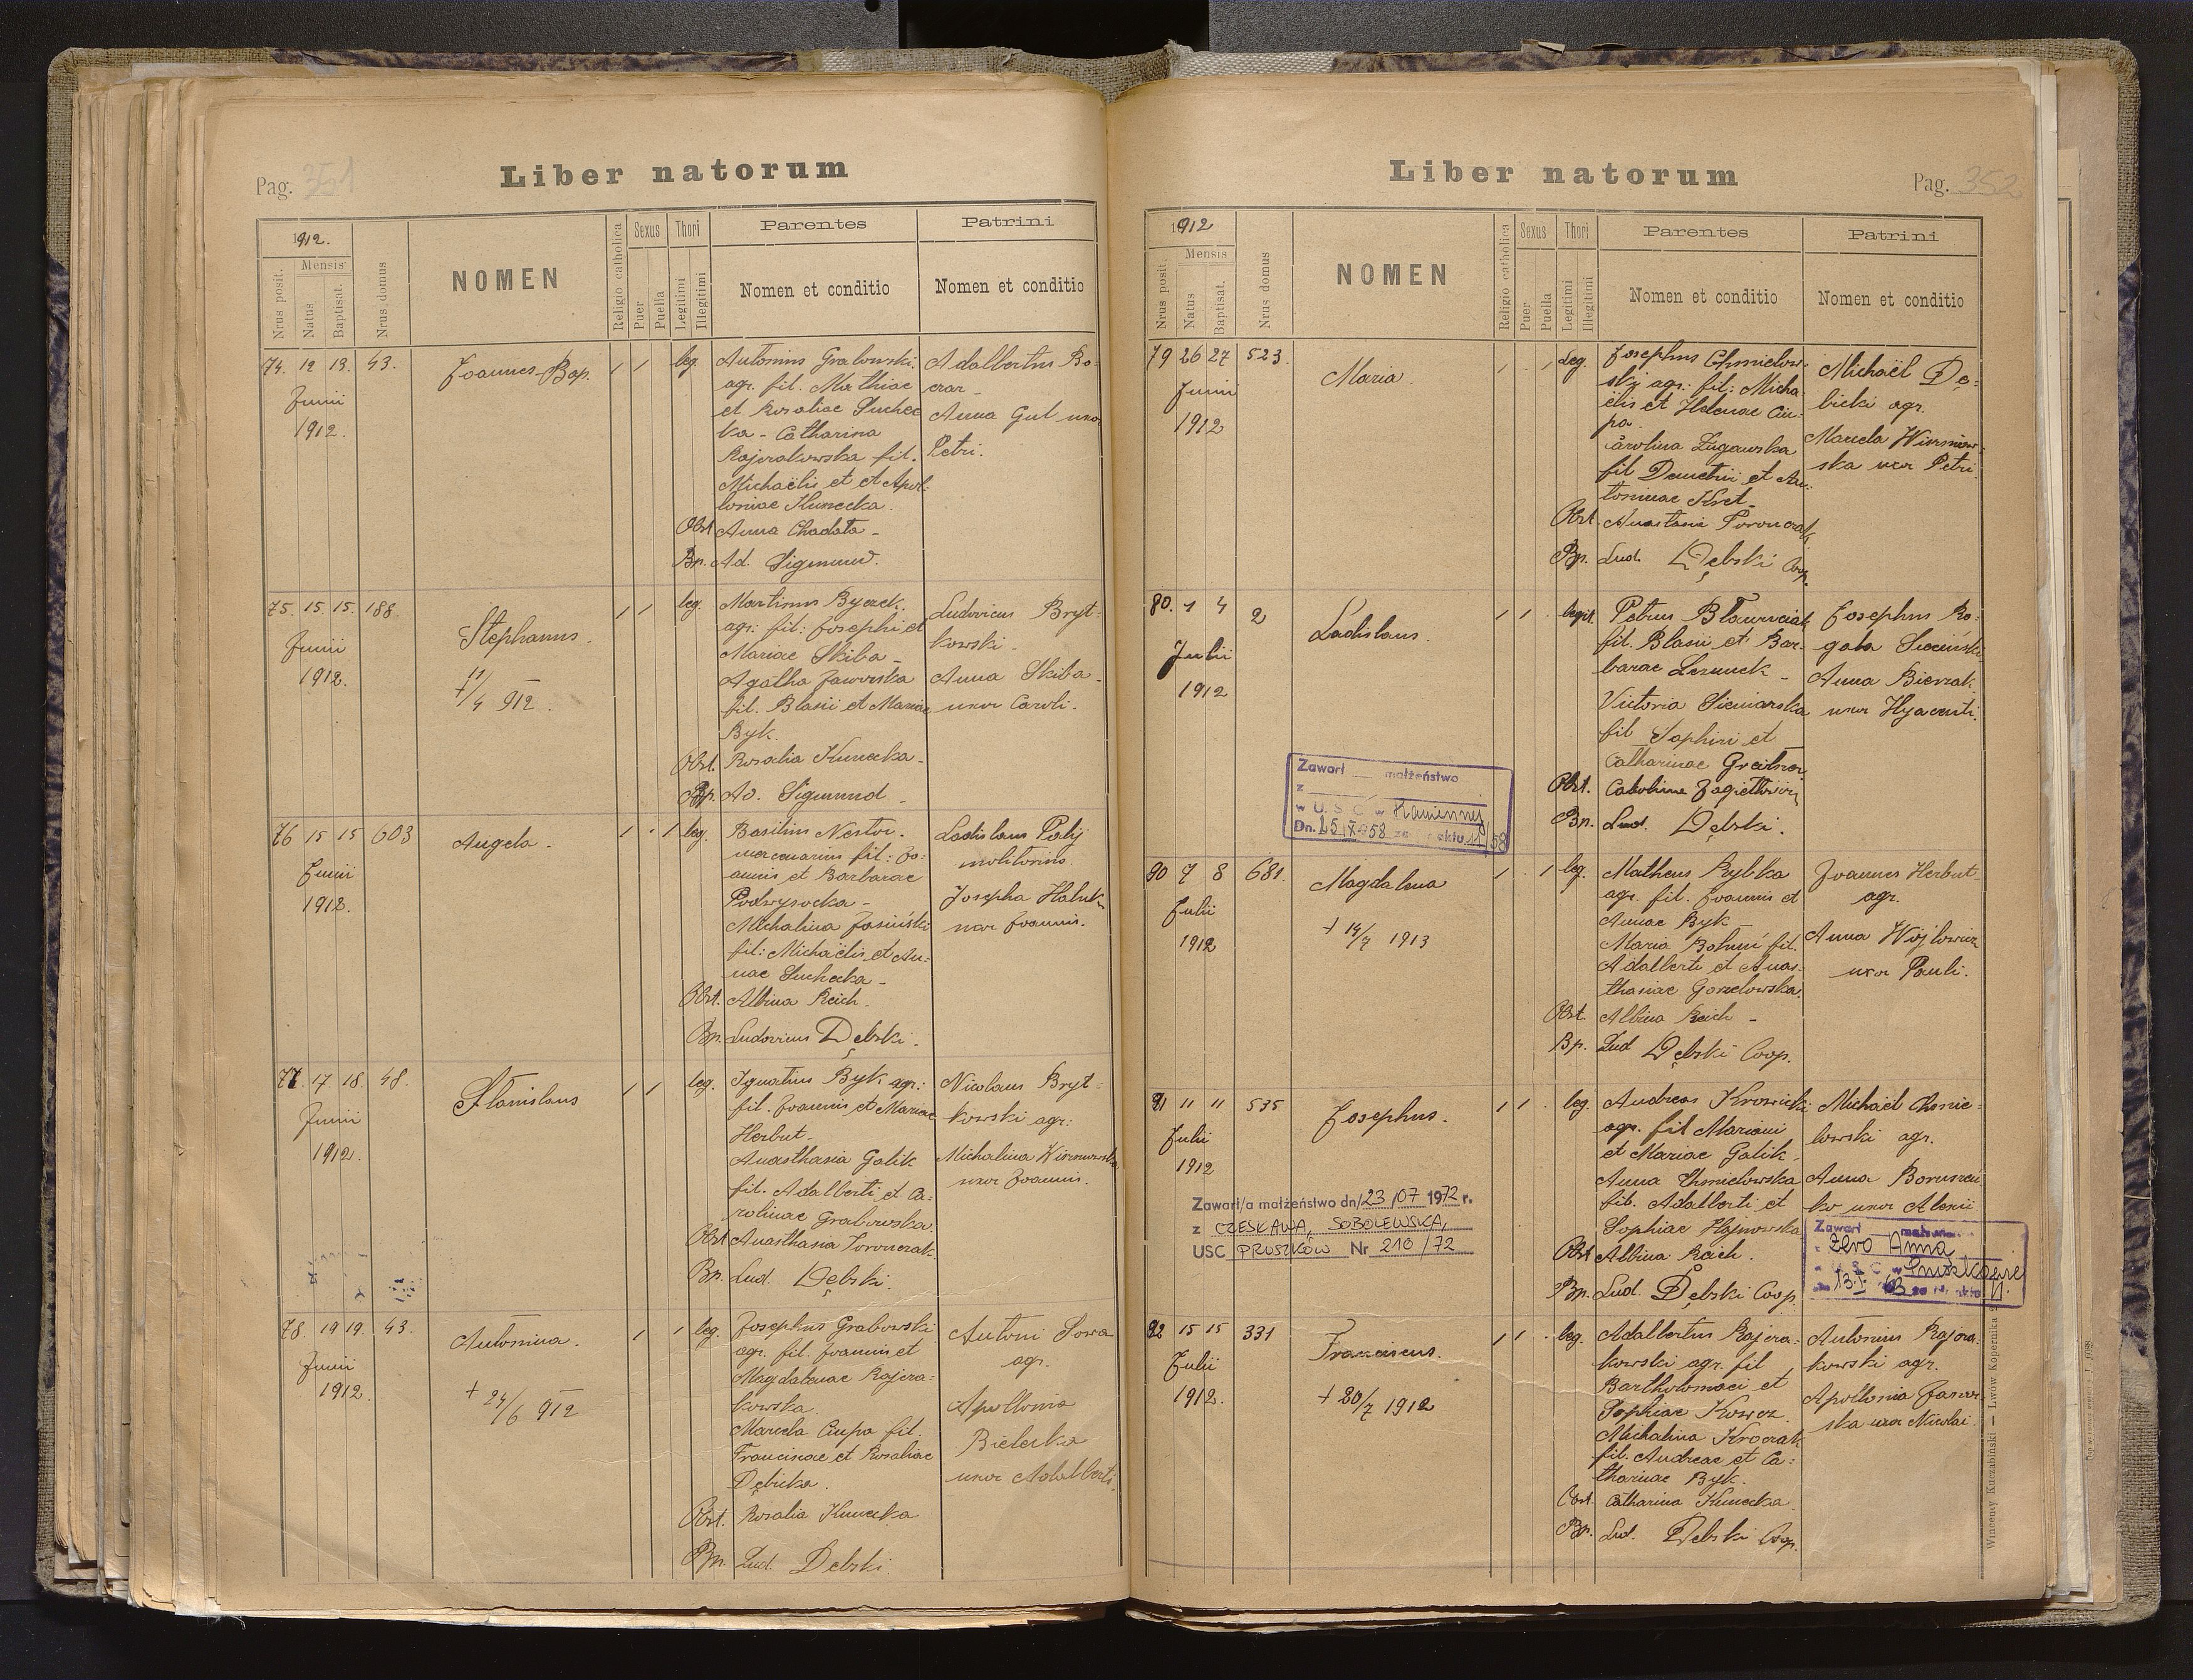 Pag. 351
Liber natorum
1912.
Mensis
Nrus posit.
Natus
Baptisat.
Nrus domus
NOMEN
Religio catholica
Sexus
Puer
Puella
Thori
Legitimi
Illegitimi
Parentes
Nomen et conditio
Patrini
Nomen et conditio
74. 12 13. 43.
Junii
1912.
Joannes Bap.
leg.
Antonius Grabowski
agr. fil. Mathiae
et Rosaliae Suchec
ka - Catharina
Kajzrakowska fil.
Michaëlis et Apol-
loniae Kunecka.
Obst Anna Chadata -
Bp. Ad. Sigmund.
Adalbertus Bo-
crar -
Anna Gul uxor
Petri.
75. 15. 15. 188
Junii
1912.
Stephanus.
912.
leg.
Martinus Byczek.
agr. fil: Josephi et
Mariae Skiba -
Agatha Jaworska
fil. Blasii et Mariae
Byk.
Obst. Rosalia Kunecka -
Bp. Ad. Sigmund -
Ludovicus Bryt-
kowski -
Anna Skiba -
uxor Caroli.
76 15 15 603
Junii
1912.
Angela -
leg.
Basilius Nestor.
mercenarius fil: Jo-
annis et Barbarae
Podwysocka -
Michalina Jasiński
fil: Michaëlis et An-
nae Suchecka -
Obst. Albina Reich.
Bp. Ludovicus Dębski.
Ladislaus Palij
molitorius.
Josepha Haluk
uxor Joannis.
77. 17. 18. 48.
Junii
1912.
Stanislaus
leg.
Ignatius Byk agr:
fil. Joannis et Mariae
Herbut -
Anasthasia Galik
fil. Adalberti et Ca-
rolinae Grabowska
Obst Anasthasia Toronczak
Bp. Lud. Dębski.
Nicolaus Bryt-
kowski agr:
Michalina Wiszniowska
uxor Joannis.
78. 19 19. 43.
Junii
1912.
Antonina.
+ 24/6 912
leg.
Josephus Grabowski
agr. fil. Joannis et
Magdalenae Kajzra-
kowska.
Marcela Ciupa fil.
Francisci et Rosaliae
Dębicka.
Obst. Rosalia Kunecka
Bp. Lud. Dębski.
Antoni Sowa
agr.
Apollonia
Bielecka
uxor Adalberti.
Liber natorum
Pag. 352
1912
Mensis
Nrus posit.
Natus
Baptisat.
Nrus domus
NOMEN
Religio catholica
Sexus
Puer
Puella
Thori
Legitimi
Illegitimi
Parentes
Nomen et conditio
Patrini
Nomen et conditio
79 26 27 523.
Junii
1912
Maria.
Leg.
Josephus Chmielow-
ski agr: fil: Micha-
ëlis et Helenae Ciu-
pa.
Carolina Ługowska
fil Demetrii et An-
toninae Kret -
Obst. Anastasia Toronczak
Bp. Lud. Dębski Coop.
Michaël Dę-
bicki agr.
Marcela Wiszniow-
ska uxor Petri.
80. 1 4 2
Julii
1912
Ladislaus.
legit.
Petrus Bławuciak
fil. Blasii et Bar-
barae Leszneck -
Victoria Sieniarska
fil Josephi et
Catharinae
Obst. Carolina Zagiełłowicz
Bp. Lud. Dębski.
Josephus Ro-
gala Siociński
Anna Bierzak
uxor Hyacinti.
Zawarł małżeństwo
z
w U.S.C. w Kamiennej
Dn. 25.X.58 za aktu 11/58
90 7 8 681.
Julii
1912
Magdalena
+ 14/7 1913
leg.
Matheus Rybka
agr. fil. Joannis et
Annae Byk -
Maria Bahuń fil.
Adalberti et Anas-
thasiae Gorzelowska.
Obst. Albina Reich -
Bp. Lud Dębski Coop.
Joannes Herbut
agr.
Anna Wójtowicz
uxor Pauli.
91 11 11 535
Julii
1912
Josephus.
leg.
Andreas Krowicki
agr. fil Mariani
et Mariae Galik,
Anna Chmielowska
fil. Adalberti et
Sophiae Hajnowska
Obst Albina Reich.
Bp. Lud. Dębski Coop.
Michaël Chmie-
lowski agr.
Anna Boruszeń-
ko uxor Alexii
Zawarł/a małżeństwo dn. 23/07 1972 r.
z CZESŁAWĄ, SOBOLEWSKĄ,
USC PRUSZKÓW Nr 210/72
Zawarł małżeństwo
z Zero Anna
w U S C w Pruszkowie
13.I. 63 za Nr. aktu 11.
92 15 15 331
Julii
1912.
Franciscus.
+ 20/7 1912
leg.
Adalbertus Kajzra-
kowski agr. fil
Bartholomaei et
Sophiae Kowcz.
Michalina Kroczak
fil. Andreae et Ca-
tharinae Byk.
Obst. Catharina Kunecka.
Bp. Lud. Dębski Coop.
Antonius Kajzra-
kowski agr.
Apollonia Jawor-
ska uxor Nicolai.
Wincenty Kuczabiński — Lwów Kopernika